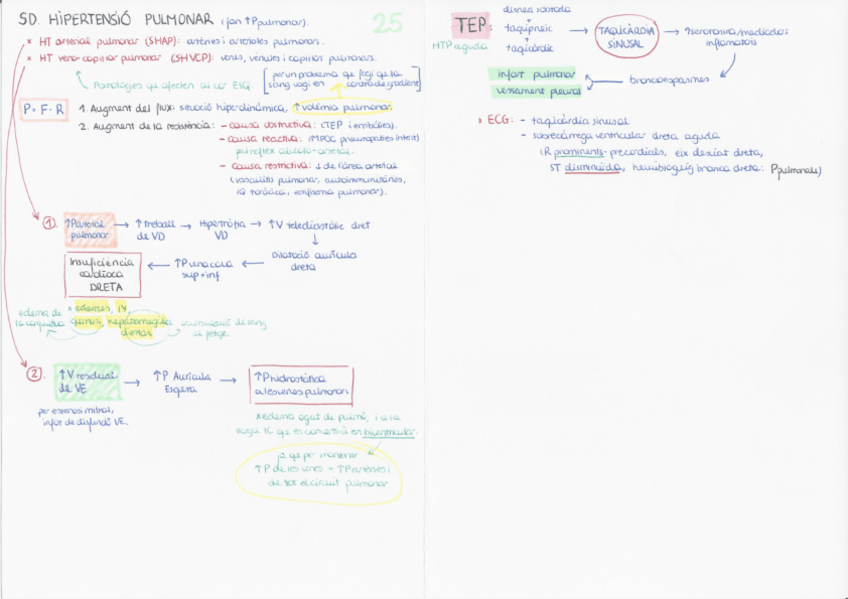 SD. HIPERTENSIÓ PULMONAR (fan ↑Ppulmonar).
25
* HT arterial pulmonar (SHAP): artèries i arterioles pulmonars.
* HT veno-capilar pulmonar (SHVCP): venes, vènules i capilars pulmonars.
Patologies que afecten al cor ESQ
[per un problema que fagi que la
sang vagi en contra de gradient]
P = F · R
1. Augment del flux: situació hiperdinàmica, ↑ volèmia pulmonar.
2. Augment de la resistència: - causa obstructiva: (TEP i embòlies).
- causa reactiva: (MPOC, pneumopaties interst)
pel reflex alveolo-arterial.
- causa restrictiva: ↓ de l'àrea arterial
(vasculitis pulmonar, autoimmunitàries,
IQ toràcica, emfisema pulmonar).
1. ↑Parterial pulmonar → ↑ treball de VD → Hipertròfia VD → ↑V telediastòlic dret
↓
Dilatació aurícula dreta
← ↑P vena cava sup + inf
← Insuficiència cardíaca DRETA
edema de
* edemes, IY,
hepatomegàlia
acumulació de sang
al fetge.
2. ↑V residual de VE → ↑P Aurícula Esquerra → ↑Phidrostàtica a les venes pulmonars
per estenosi mitral,
infart de disfunció VE.
* edema agut de pulmó, i a la
llarga IC que es converteix en biventricular.
ja que per mantenir
↑P de les venes → ↑P artèries i
de tot el circuit pulmonar
TEP:
HTP aguda
dispnea sobtada
+
taquipneic
+
taquicàrdic
→ TAQUICÀRDIA SINUSAL → ↑serotonina/mediadors
inflamatoris
broncoespasmes
infart pulmonar
vessament pleural
* ECG: - taquicàrdia sinusal
- sobrecàrrega ventricular dreta aguda
(R prominents precordials, eix desviat dreta,
ST disminuïda, hemibloqueig branca dreta: Ppulmonale)